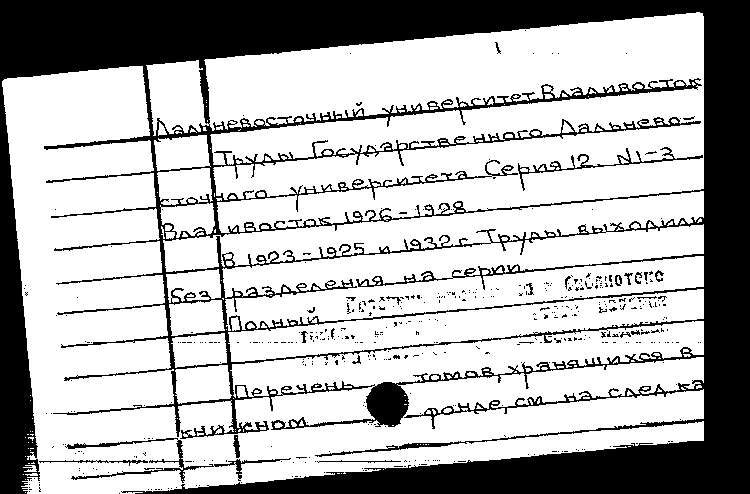 Дальневосточный университет Владивосток
Труды Государственного Дальнево=
сточного университета Серия 12. N1-3
Владивосток, 1926-1928.
В 1923-1925 и 1932 г. Труды выходили
без разделения на серии.
Полный
в библиотеке
Перечень томов, хранящихся в
книжном фонде, см на след. ка